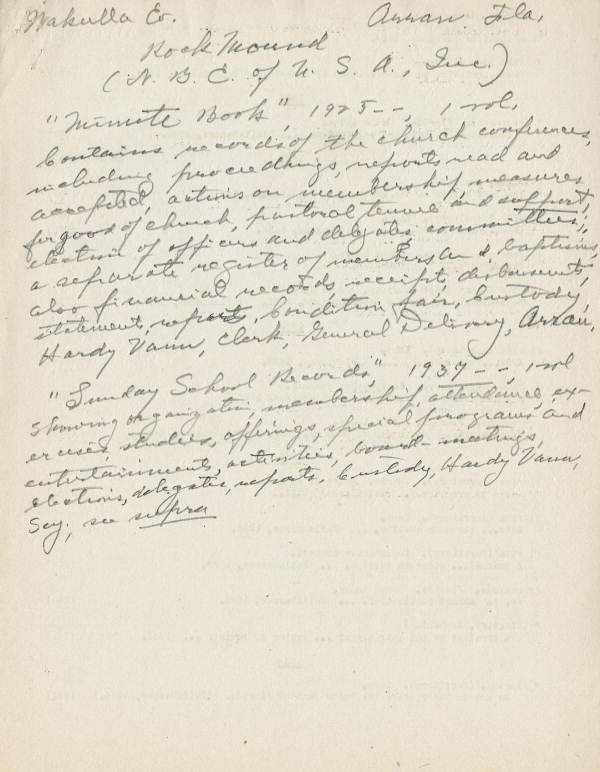 Wakulla Co. Arran Fla.
Rock Mound
(N. B. C. of U. S. A., Inc.)
"Minute Book", 1925--, 1 vol.
Contains records of the church conferences,
including proceedings, reports read and
accepted, actions on membership, measures
for good of church, pastoral tenure and support,
election of officers and delegates committees;
a separate register of members and baptisms,
also financial records receipts, disbursements,
statements, reports, Condition fair, Custody,
Hardy Vann, Clerk, General Delivery, Arran,
"Sunday School Records," 1937--, 1 vol
showing organization, membership, attendance, ex-
ercises, studies, offerings, special programs and
entertainments, activities, board meetings,
elections, delegates, reports, Custody, Hardy Vann,
Scy; see supra